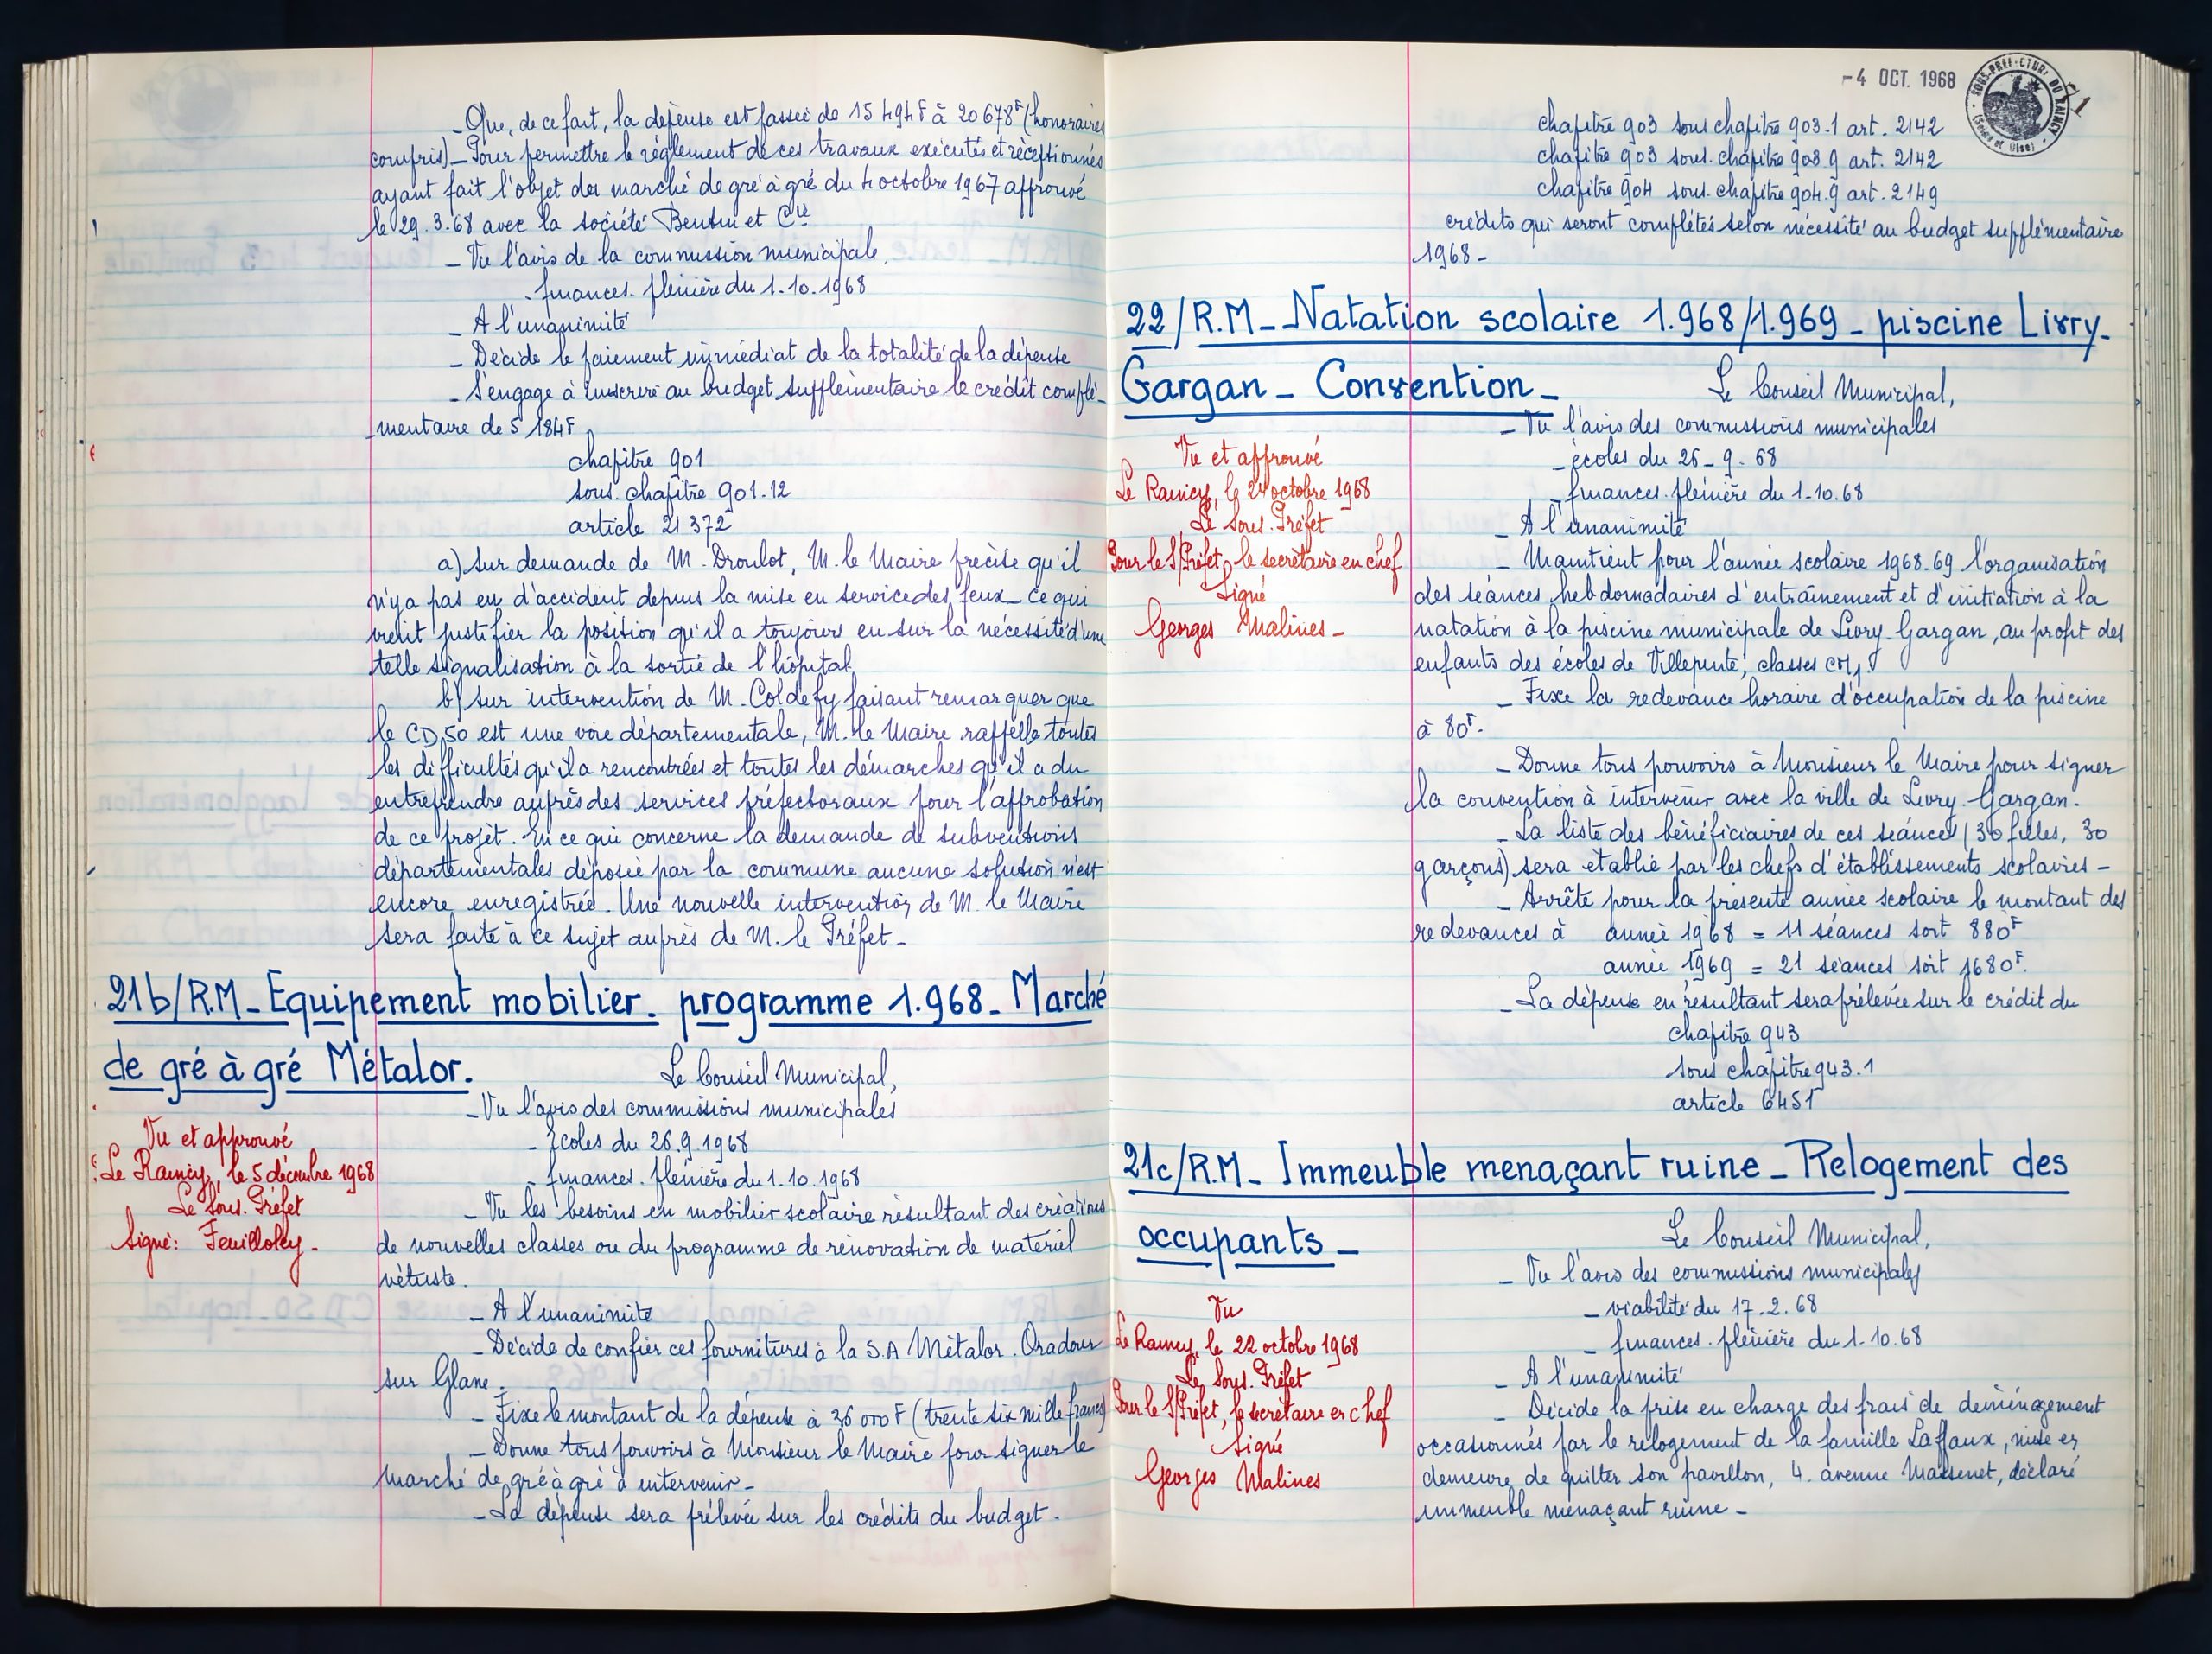 - Que, de ce fait, la dépense est passée de 15 494F à 20 678F (honoraires
compris) - Pour permettre le réglement de ces travaux exécutés et réceptionnés
ayant fait l'objet du marché de gré à gré du 4 octobre 1967 approuvé
le 29.3.68 avec la société et Cie
- Vu l'avis de la commission municipale
- finances. plénière du 1-10.1968
- A l'unanimité
- Décide le paiement immédiat de la totalité de la dépense
- S'engage à inscrire au budget supplémentaire le crédit complé-
mentaire de 5 184F
chapitre 901
sous. chapitre 901.12
article 21 372
a) sur demande de M. Droulot, M. le Maire précise qu'il
n'y a pas eu d'accident depuis la mise en service des feux - ce qui
vient justifier la position qu'il a toujours eu sur la nécessité d'une
telle signalisation à la sortie de l'hôpital.
b) sur intervention de M. Coldefy faisant remarquer que
le CD.50 est une voie départementale, M. le Maire rappelle toutes
les difficultés qu'il a rencontrées et toutes les démarches qu'il a du
entreprendre auprès des services préfectoraux pour l'approbation
de ce projet. En ce qui concerne la demande de subventions
départementales déposée par la commune aucune solution n'est
encore enregistrée. Une nouvelle intervention de M. le Maire
sera faite à ce sujet auprès de M. le Préfet -
21b/R.M - Equipement mobilier. programme 1.968 - Marché
de gré à gré Métalor.
Le Conseil Municipal,
Vu et approuvé
Le Raincy, le 5 décembre 1968
Le Sous. Préfet
Signé: Feuilloley -
- Vu l'avis des commissions municipales
- écoles du 26.9.1968
- finances. plénière du 1-10.1968
- Vu les besoins en mobilier scolaire résultant des créations
de nouvelles classes ou du programme de rénovation de matériel
vétuste.
- A l'unanimité
- Décide de confier ces fournitures à la S.A Métalor. Oradour
sur Glane.
- Fixe le montant de la dépense à 36 000 F (trente six mille francs)
- Donne tous pouvoirs à Monsieur le Maire pour signer le
marché de gré à gré à intervenir -
- La dépense sera prélevée sur les crédits du budget.
- 4 OCT. 1968
SOUS-PRÉFECTURE DU RAINCY
(Seine et Oise)
chapitre 903 sous chapitre 903-1 art. 2142
chapitre 903 sous. chapitre 903.9 art. 2142
chapitre 904 sous. chapitre 904.9 art. 2149
crédits qui seront complétés selon nécessité au budget supplémentaire
1968 -
22/R.M - Natation scolaire 1.968/1.969 - piscine Livry-
Gargan - Convention -
Le Conseil Municipal,
Vu et approuvé
Le Raincy, le 24 octobre 1968
Le Sous. Préfet
Pour le S/Préfet, le secrétaire en chef
Signé
Georges Malines -
- Vu l'avis des commissions municipales
- écoles du 26-9-68
- finances. plénière du 1-10.68
- A l'unanimité
- Maintient pour l'année scolaire 1968-69 l'organisation
des séances hebdomadaires d'entraînement et d'initiation à la
natation à la piscine municipale de Livry-Gargan, au profit des
enfants des écoles de Villepinte, classes CM1.
- Fixe la redevance horaire d'occupation de la piscine
à 80F.
- Donne tous pouvoirs à Monsieur le Maire pour signer
la convention à intervenir avec la ville de Livry-Gargan.
- La liste des bénéficiaires de ces séances (30 filles, 30
garçons) sera établie par les chefs d'établissements scolaires -
- Arrête pour la présente année scolaire le montant des
redevances à année 1968 = 11 séances soit 880F
année 1969 = 21 séances soit 1680F.
- La dépense en résultant sera prélevée sur le crédit du
chapitre 943
sous chapitre 943.1
article 6451
21c/R.M - Immeuble menaçant ruine - Relogement des
occupants -
Le Conseil Municipal,
Vu
Le Raincy, le 22 octobre 1968
Le Sous. Préfet
Pour le S/Préfet, le secrétaire en chef
Signé
Georges Malines
- Vu l'avis des commissions municipales
- viabilité du 17.2.68
- finances. plénière du 1-10.68
- A l'unanimité
- Décide la prise en charge des frais de déménagement
occasionnés par le relogement de la famille Laffaux, mise en
demeure de quitter son pavillon, 4. avenue Massenet, déclaré
immeuble menaçant ruine -